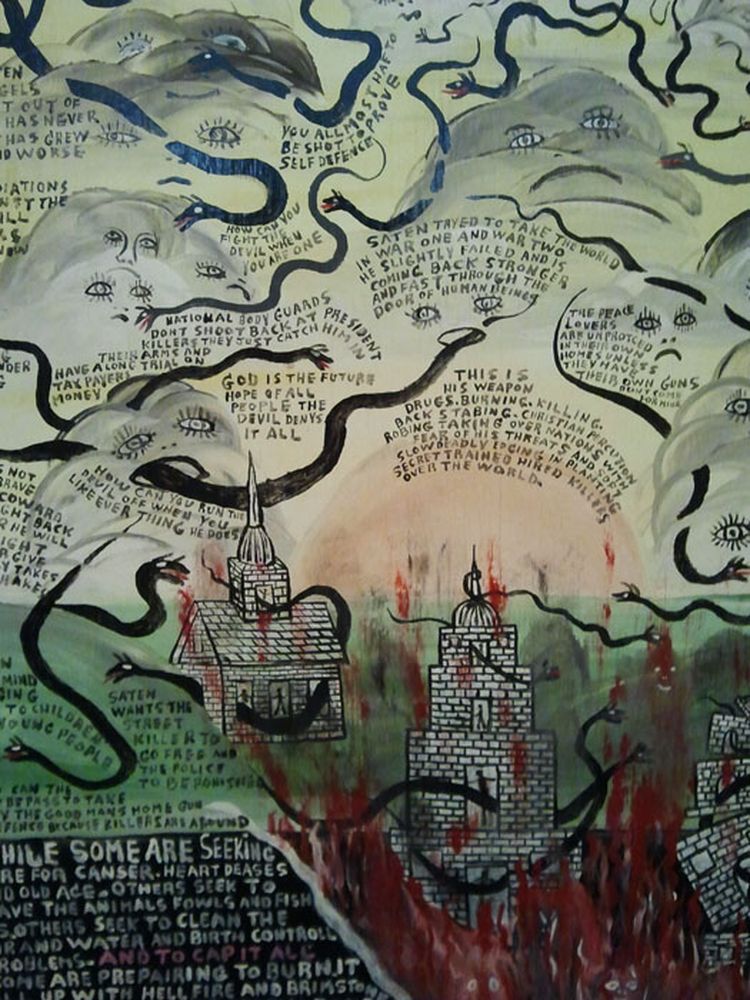 GELS
T OUT OF
HAS NEVER
HAS GREW
D WORSE
IATIONS
T THE
ILL
YOU ALLMOST HAF TO
BE SHOT TO PROVE
SELF DEFENCE
HOW CAN YOU
FIGHT THE
DEVIL WHEN
YOU ARE ONE
SATEN TRYED TO TAKE THE WORLD
IN WAR ONE AND WAR TWO
HE SLIGHTLY FAILED AND IS
COMING BACK STRONGER
AND FAST THROUGH THE
DOOR OF HUMAN BEINGS
NATIONAL BODY GUARDS
DONT SHOOT BACK AT PRESIDENT
KILLERS THEY JUST CATCH HIM IN
THEIR ARMS AND
HAVE A LONG TRIAL ON
TAX PAYERS
MONEY
THE PEACE
LOVERS
ARE UNPROTCED
IN THEIR OWN
HOMES UNLESS
THEY HAVE
THEIR OWN GUNS
GOD IS THE FUTURE
HOPE OF ALL
PEOPLE THE
DEVIL DENYS
IT ALL
THIS IS
HIS WEAPON
DRUGS. BURNING. KILLING.
BACK STABING. CHRISTIAN PERCUTION
ROBING TAKING OVER NATIONS WITH
FEAR OF HIS THREATS AND WITH
SLOW DEADLY EDGING IN PLANTING
SECRET TRAINED HIRED KILLERS
OVER THE WORLD.
HOW CAN YOU RUN THE
DEVIL OFF WHEN YOU
LIKE EVER THING HE DOES
S NOT
BRAVE
COWARD
GHT BACK
HE WILL
IGHT
GIVE
TAKES
MIND
GING
TO CHILDREN
YOUNG PEOPLE
SATEN
WANTS THE
STREET
KILLER TO
GO FREE AND
THE POLICE
TO BE PONISHED
CAN THE
BE PASS TO TAKE
THE GOOD MANS HOME GUN
FENCE BECAUSE KILLERS ARE AROUND
HILE SOME ARE SEEKING
RE FOR CANSER. HEART DEASES
D OLD AGE. OTHERS SEEK TO
AVE THE ANIMALS FOWLS AND FISH
S. OTHERS SEEK TO CLEAN THE
R AND WATER AND BIRTH CONTROLL
ROBLEMS. AND TO CAP IT ALL
OME ARE PREPAIRING TO BURN IT
L UP WITH HELL FIRE AND BRIMSTON